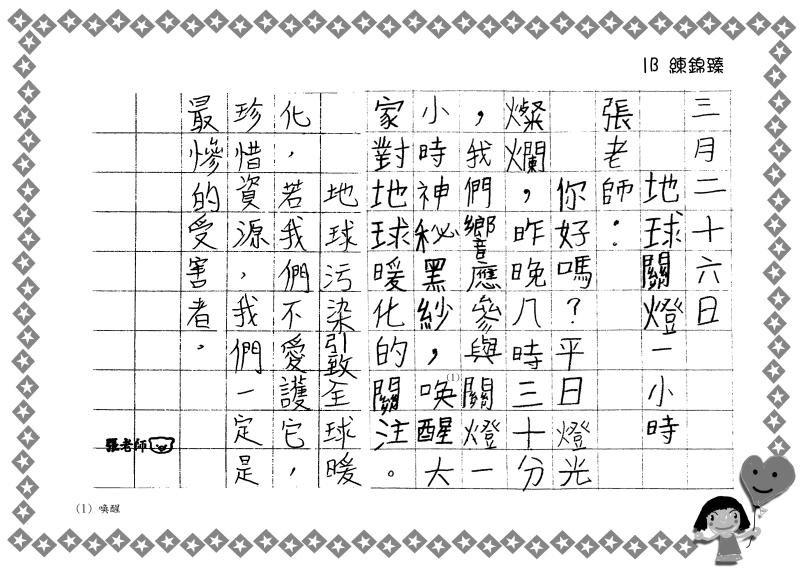 1B 練錦臻
三月二十六日
地球關燈一小時
張老師：
你好嗎？平日燈光
燦爛，昨晚八時三十分
，我們響應參與關燈一
小時神秘黑紗，喚(1)醒大
家對地球暖化的關注。
地球污染引致全球暖
化，若我們不愛護它，
珍惜資源，我們一定是
最慘的受害者。
張老師
(1) 喚醒